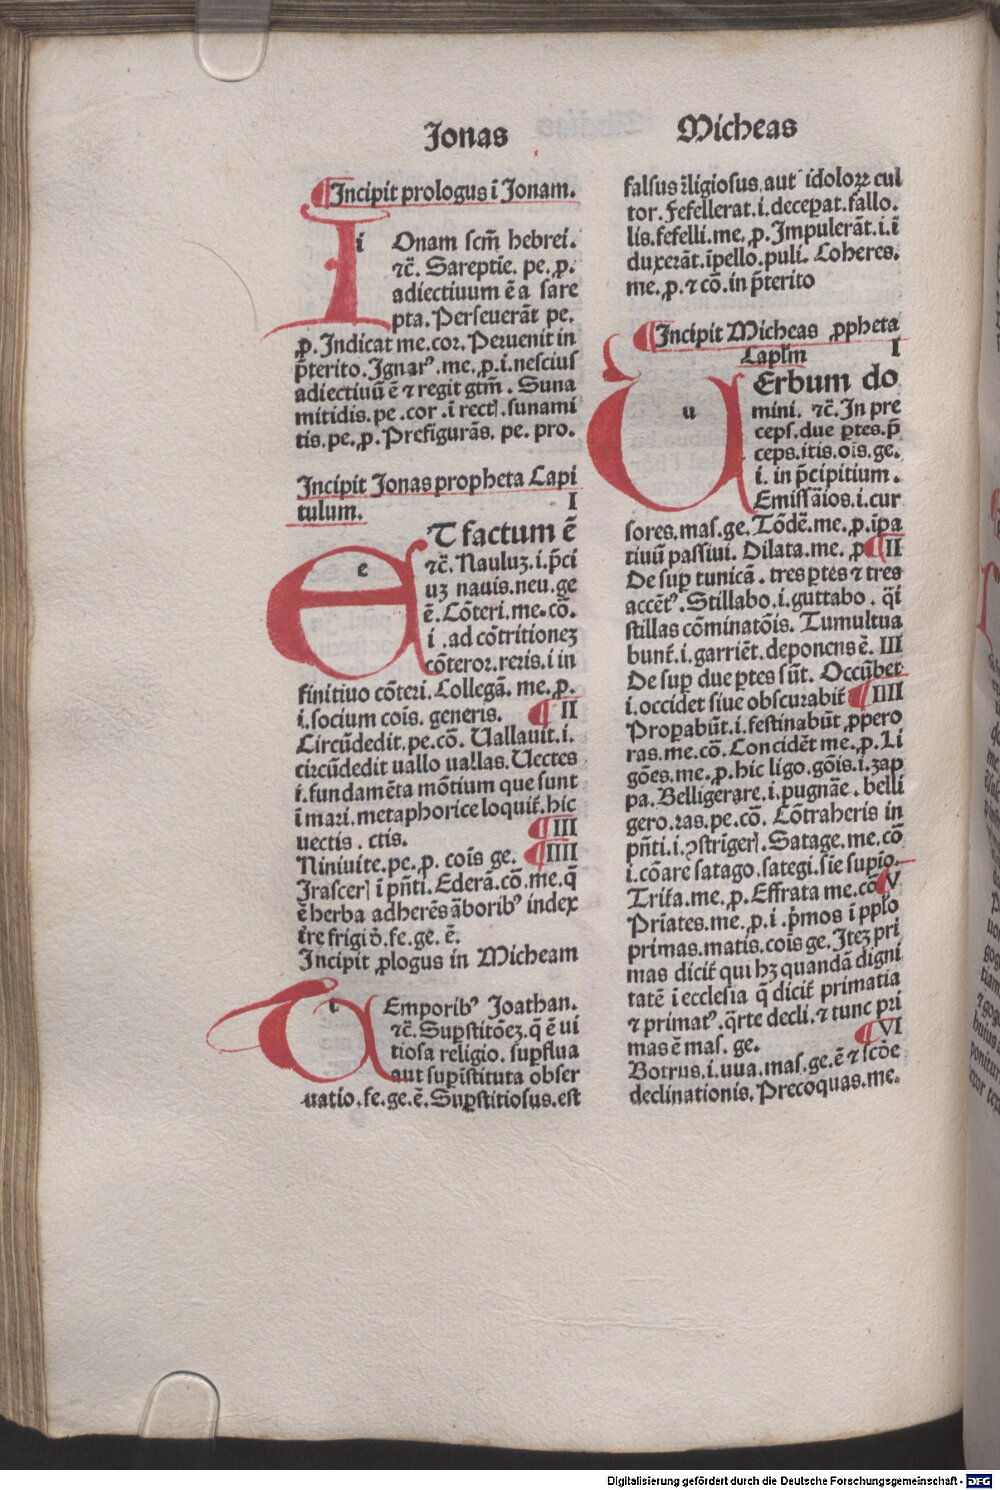 Jonas
Micheas
¶Incipit prologus ī Jonam.
i Onam scm̄ hebrei.
ꝛc̄. Sareptie. pe. ꝓ.
adiectiuum ē a sare
pta. Perseuerāt pe.
ꝓ. Indicat me. cor. Peruenit in
p̄terito. Ignarꝰ. me. ꝓ. i. nescius
adiectiuū ē ⁊ regit gtm̄. Suna
mitidis. pe. cor. ī rectꝭ. sunami
tis. pe. ꝓ. Prefigurās. pe. pro.
Incipit Jonas propheta Capi
tulum. I
e T factum ē
ꝛc̄. Nauluꝫ. i. p̄ci
uꝫ nauis. neu. ge
ē. Cōteri. me. cō.
i. ad cōtritioneꝫ
cōteror. reris. i in
finitiuo cōteri. Collegā. me. ꝓ.
i. socium cois̄. generis. ¶ II
Circūdedit. pe. cō. Uallauit. i.
circūdedit uallo uallas. Uectes
i. fundamēta mōtium que sunt
ī mari. metaphorice loquit̄. hic
uectis. ctis. ¶III
Niniuite. pe. ꝓ. cois̄ ge. ¶IIII
Irascerꝭ ī pn̄ti. Ederā. cō. me. q̄
ē herba adherēs āboribꝰ index
tre frigiō. fe. ge. ē.
Incipit ꝓlogus in Micheam
t Emporibꝰ Joathan.
ꝛc̄. Suꝑstitōeꝫ. q̄ ē ui
tiosa religio. suꝑflua
aut suꝑistituta obser
uatio. fe. ge. ē. Suꝑstitiosus. est
falsus r̄ligiosus. aut idoloꝝ cul
tor. Fefellerat. i. deceꝑat. fallo.
lis. fefelli. me. ꝓ. Impulerāt. i. ī
duxerāt. īpello. puli. Coheres.
me. ꝓ. ⁊ cō. in p̄terito
¶Incipit Micheas ꝓpheta
Capl̄m I
u Erbum do
mini. ꝛc̄. In pre
ceps. due ꝑtes. p̄
ceps. itis. ois̄. ge.
i. in p̄cipitium.
Emissāios. i. cur
sores. mas. ge. Tōdē. me. ꝓ. īpa
tiuū passiui. Dilata. me. ꝓ ¶II
De suꝑ tunicā. tres ꝑtes ⁊ tres
accēt̄ꝰ. Stillabo. i. guttabo. q̄i
stillas cōminatōis. Tumultua
bunt̄. i. garriēt. deponens ē. III
De suꝑ due ꝑtes sūt. Occūbet
i. occidet siue obscurabit̄ ¶IIII
Proꝑabūt. i. festinabūt ꝓpero
ras. me. cō. Concidēt me. ꝓ. Li
gōes. me. ꝓ. hic ligo. gōis. i. zap
pa. Belligerare. i. pugnāe. belli
gero. ras. pe. cō. Cōtraheris in
pn̄ti. i. ↄstrīgerꝭ. Satage. me. cō
i. cōare satago. sategi. sīe supio.
Trit̄a. me. ꝓ. Effrata me. cō ¶V
Prīates. me. ꝓ. i. p̄mos ī pplo
primas. matis. cois̄ ge. Iteꝫ pri
mas dicit̄ qui hꝫ quandā digni
tatē ī ecclesia q̄ dicit̄ primatia
⁊ primatꝰ. q̄rte decli. ⁊ tunc pri
mas ē mas. ge. ¶VI
Botrus. i. uua. mas. ge. ē ⁊ scōe
declinationis. Precoquas. me.
Digitalisierung gefördert durch die Deutsche Forschungsgemeinschaft - DFG